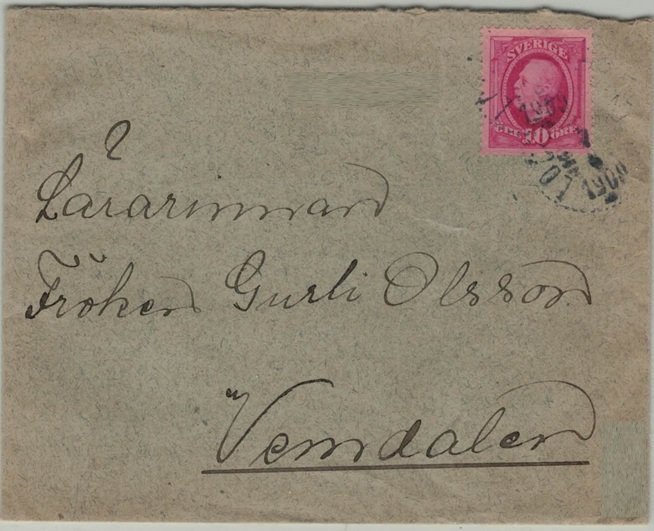 SVERIGE
10 ÖRE
Lärarinnan
Fröken Gurli Olsson
Vemdalen